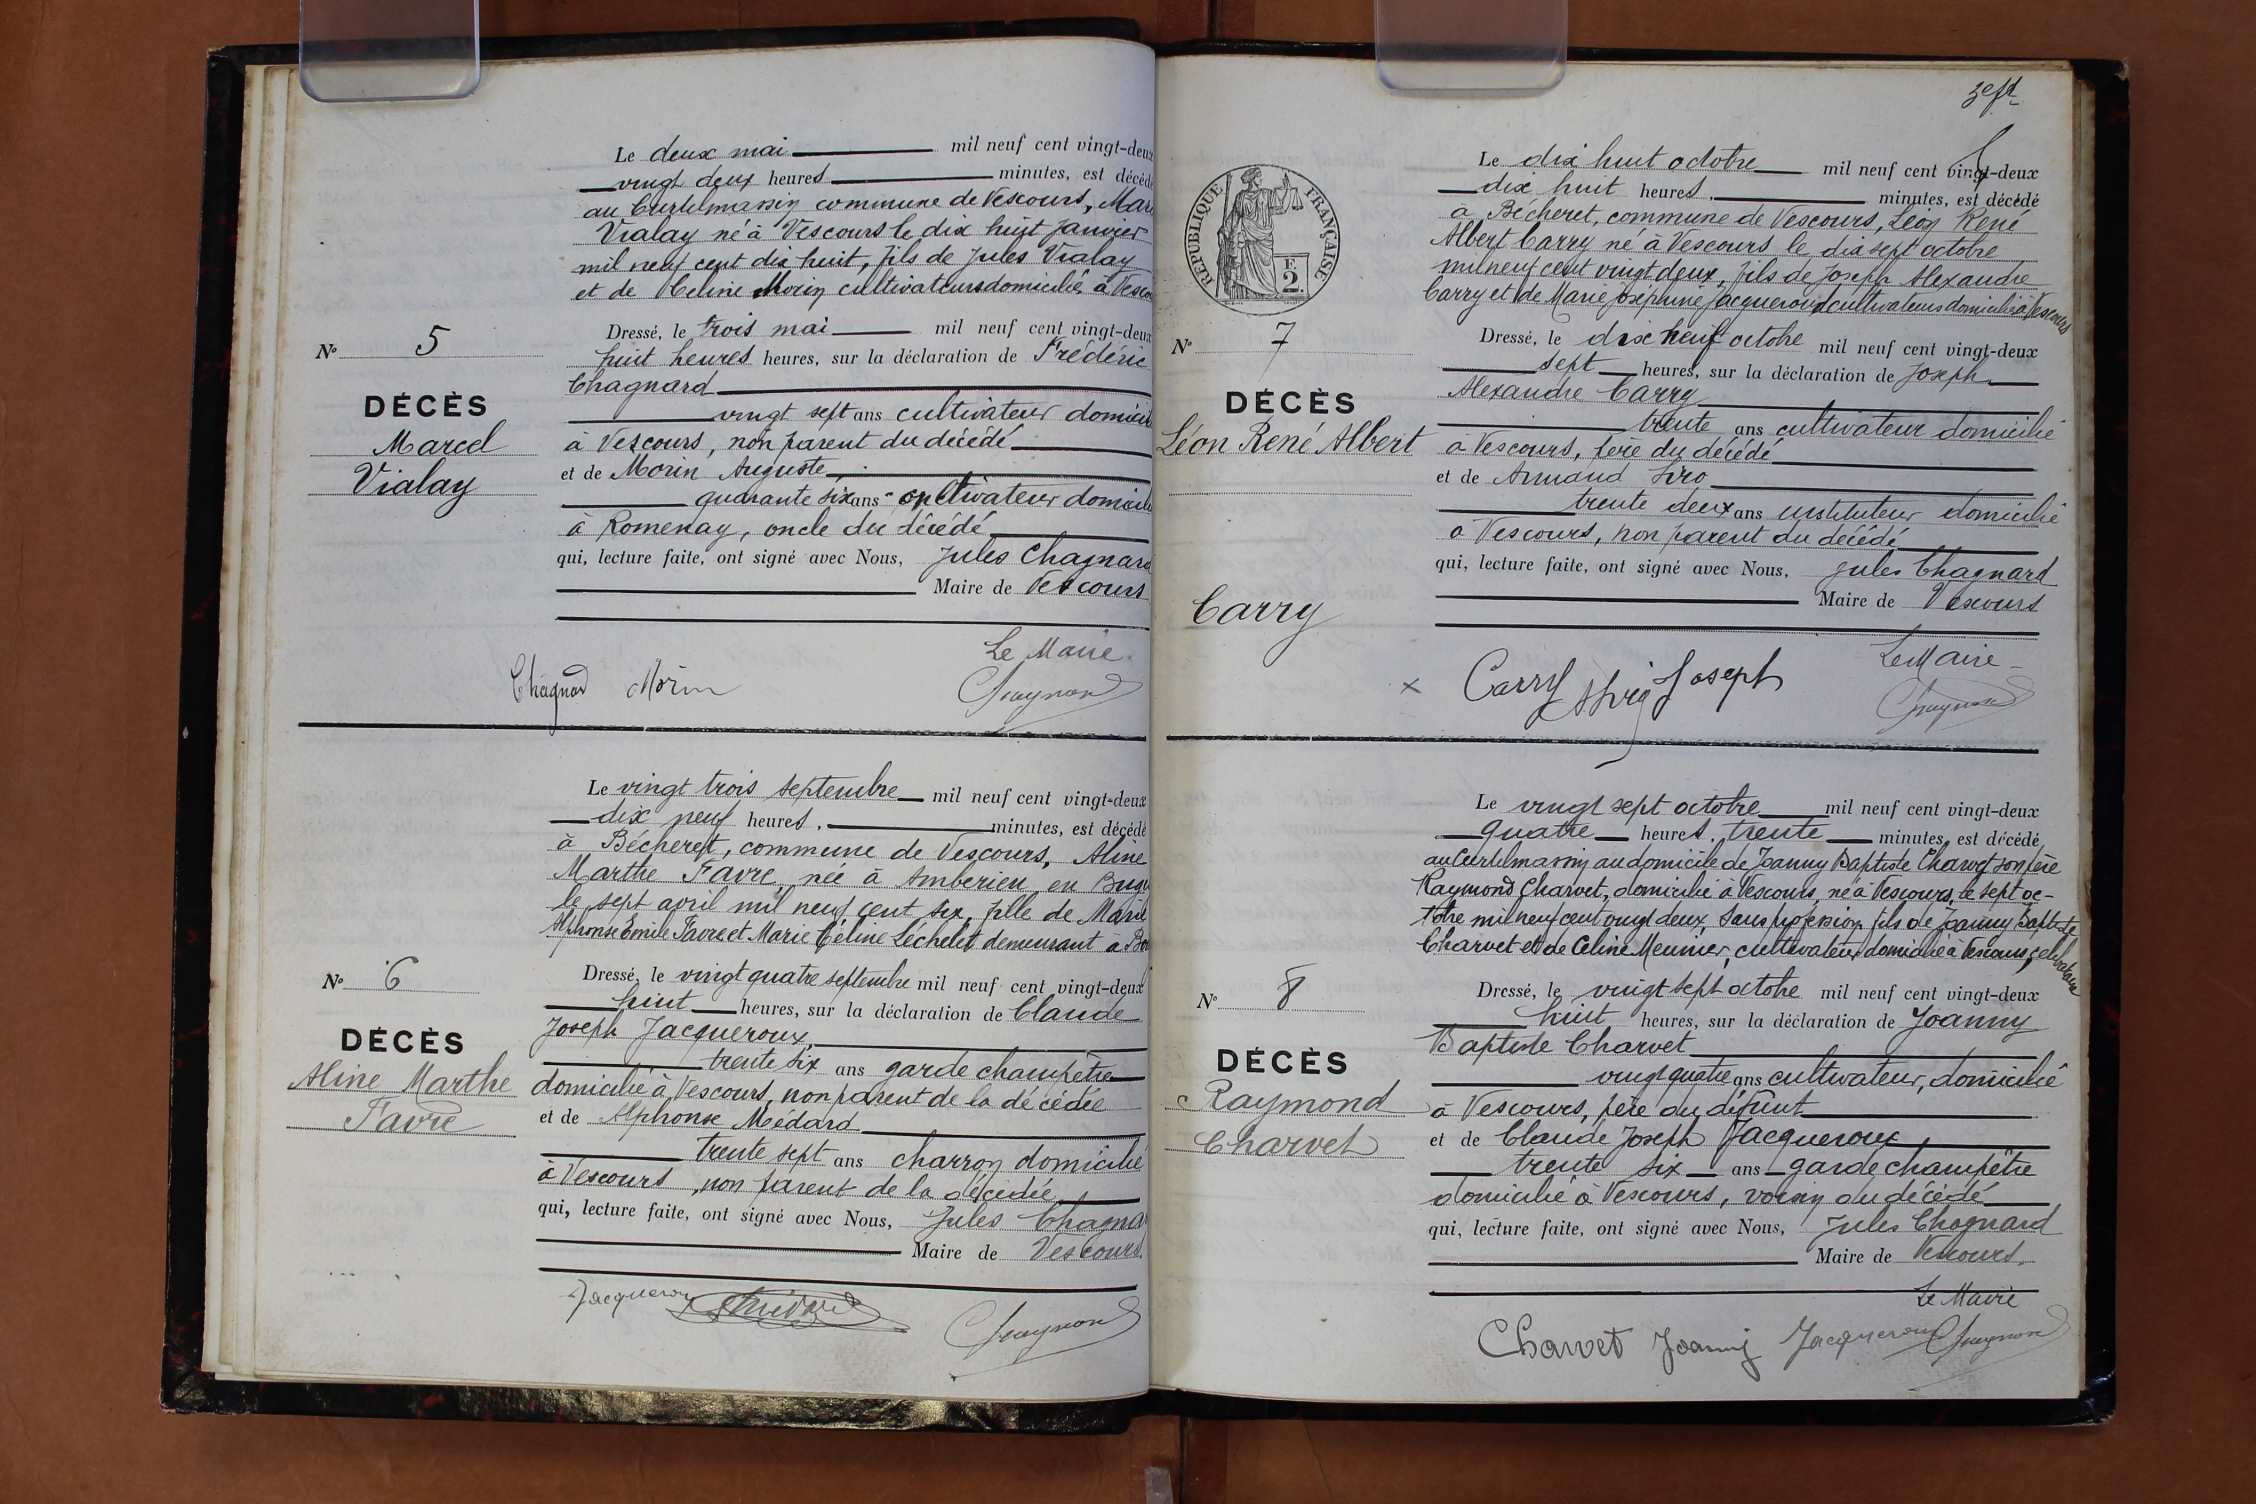 Le deux mai mil neuf cent vingt-deux
vingt deux heures minutes, est décédé
au Curtelmassin commune de Vescours, Mar
Vialay né à Vescours le dix huit janvier
mil neuf cent dix huit, fils de Jules Vialay
et de Céline Morin cultivateurs domiciliés à Vesco
Nº 5
DÉCÈS
Marcel
Vialay
Dressé, le trois mai mil neuf cent vingt-deux
huit heures heures, sur la déclaration de Frédéric
Chagnard
vingt sept ans cultivateur domicil
à Vescours, non parent du décédé
et de Morin Auguste
quarante six ans cultivateur domicili
à Romenay, oncle du décédé
qui, lecture faite, ont signé avec Nous, Jules Chagnard
Maire de Vescours
Le Maire
Chagnard Morin Chagnard
Le vingt trois septembre mil neuf cent vingt-deux
dix neuf heures, minutes, est décédé
à Bécheret, commune de Vescours, Aline
Marthe Favre, née à Ambérieu en Bugey
le sept avril mil neuf cent six, fille de Marie
Alphonse Emile Favre et Marie Céline Léchelet demeurant à
Nº 6
DÉCÈS
Aline Marthe
Favre
Dressé, le vingt quatre septembre mil neuf cent vingt-deux
huit heures, sur la déclaration de Claude
Joseph Jacqueroux,
trente six ans garde champêtre
domicilié à Vescours, non parent de la décédée
et de Alphonse Médard
trente sept ans charron domicilié
à Vescours, non parent de la décédée
qui, lecture faite, ont signé avec Nous, Jules Chagna
Maire de Vescours
Jacqueroux Médard Chagnard
RÉPUBLIQUE FRANÇAISE
F.
2.
Le dix huit octobre mil neuf cent vingt-deux
dix huit heures, minutes, est décédé
à Bécheret, commune de Vescours, Léon René
Albert Carry né à Vescours le dix sept octobre
mil neuf cent vingt deux, fils de Joseph Alexandre
Carry et de Marie Joséphine Jacqueroux cultivateurs domiciliés à Vescours
Nº 7
DÉCÈS
Léon René Albert
Carry
Dressé, le dix neuf octobre mil neuf cent vingt-deux
sept heures, sur la déclaration de Joseph
Alexandre Carry
trente ans cultivateur domicilié
à Vescours, père du décédé
et de Armand
trente deux ans instituteur domicilié
à Vescours, non parent du décédé
qui, lecture faite, ont signé avec Nous, Jules Chagnard
Maire de Vescours
Le Maire
Carry Joseph Chagnard
Le vingt sept octobre mil neuf cent vingt-deux
quatre heures, trente minutes, est décédé
au Curtelmassin au domicile de Joanny Baptiste Charvet son père
Raymond Charvet, domicilié à Vescours, né à Vescours, le sept oc-
tobre mil neuf cent vingt deux, sans profession, fils de Joanny Baptiste
Charvet et de Céline Meunier, cultivateurs domiciliés à Vescours, célibataire
Nº 8
DÉCÈS
Raymond
Charvet
Dressé, le vingt sept octobre mil neuf cent vingt-deux
huit heures, sur la déclaration de Joanny
Baptiste Charvet
vingt quatre ans cultivateur, domicilié
à Vescours, père du défunt
et de Claude Joseph Jacqueroux
trente six ans garde champêtre
domicilié à Vescours, voisin du décédé
qui, lecture faite, ont signé avec Nous, Jules Chagnard
Maire de Vescours.
Le Maire
Charvet Joanny Jacqueroux Chagnard